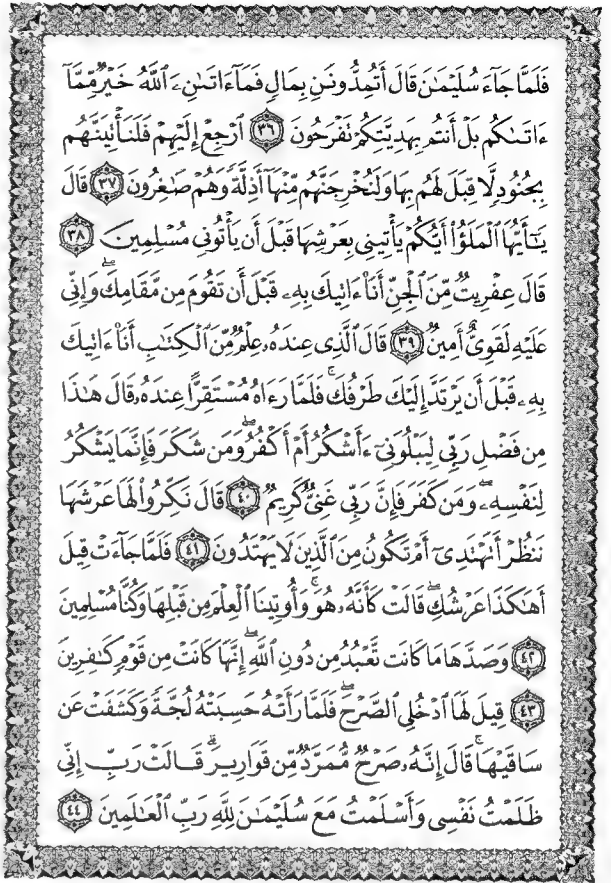 فَلَمَّا جَآءَ سُلَيْمَٰنَ قَالَ أَتُمِدُّونَنِ بِمَالٍ فَمَآ ءَاتَىٰنِۦَ ٱللَّهُ خَيْرٌ مِّمَّآ
ءَاتَىٰكُم بَلْ أَنتُم بِهَدِيَّتِكُمْ تَفْرَحُونَ ٣٦ ٱرْجِعْ إِلَيْهِمْ فَلَنَأْتِيَنَّهُم
بِجُنُودٍ لَّا قِبَلَ لَهُم بِهَا وَلَنُخْرِجَنَّهُم مِّنْهَآ أَذِلَّةً وَهُمْ صَٰغِرُونَ ٣٧ قَالَ
يَٰٓأَيُّهَا ٱلْمَلَؤُا۟ أَيُّكُمْ يَأْتِينِى بِعَرْشِهَا قَبْلَ أَن يَأْتُونِى مُسْلِمِينَ ٣٨
قَالَ عِفْرِيتٌ مِّنَ ٱلْجِنِّ أَنَا۠ ءَاتِيكَ بِهِۦ قَبْلَ أَن تَقُومَ مِن مَّقَامِكَ ۖ وَإِنِّى
عَلَيْهِ لَقَوِىٌّ أَمِينٌ ٣٩ قَالَ ٱلَّذِى عِندَهُۥ عِلْمٌ مِّنَ ٱلْكِتَٰبِ أَنَا۠ ءَاتِيكَ
بِهِۦ قَبْلَ أَن يَرْتَدَّ إِلَيْكَ طَرْفُكَ ۚ فَلَمَّا رَءَاهُ مُسْتَقِرًّا عِندَهُۥ قَالَ هَٰذَا
مِن فَضْلِ رَبِّى لِيَبْلُوَنِىٓ ءَأَشْكُرُ أَمْ أَكْفُرُ ۖ وَمَن شَكَرَ فَإِنَّمَا يَشْكُرُ
لِنَفْسِهِۦ ۖ وَمَن كَفَرَ فَإِنَّ رَبِّى غَنِىٌّ كَرِيمٌ ٤٠ قَالَ نَكِّرُوا۟ لَهَا عَرْشَهَا
نَنظُرْ أَتَهْتَدِىٓ أَمْ تَكُونُ مِنَ ٱلَّذِينَ لَا يَهْتَدُونَ ٤١ فَلَمَّا جَآءَتْ قِيلَ
أَهَٰكَذَا عَرْشُكِ ۖ قَالَتْ كَأَنَّهُۥ هُوَ ۚ وَأُوتِينَا ٱلْعِلْمَ مِن قَبْلِهَا وَكُنَّا مُسْلِمِينَ
٤٢ وَصَدَّهَا مَا كَانَت تَّعْبُدُ مِن دُونِ ٱللَّهِ ۖ إِنَّهَا كَانَتْ مِن قَوْمٍ كَٰفِرِينَ
٤٣ قِيلَ لَهَا ٱدْخُلِى ٱلصَّرْحَ ۖ فَلَمَّا رَأَتْهُ حَسِبَتْهُ لُجَّةً وَكَشَفَتْ عَن
سَاقَيْهَا ۚ قَالَ إِنَّهُۥ صَرْحٌ مُّمَرَّدٌ مِّن قَوَارِيرَ ۗ قَالَتْ رَبِّ إِنِّى
ظَلَمْتُ نَفْسِى وَأَسْلَمْتُ مَعَ سُلَيْمَٰنَ لِلَّهِ رَبِّ ٱلْعَٰلَمِينَ ٤٤